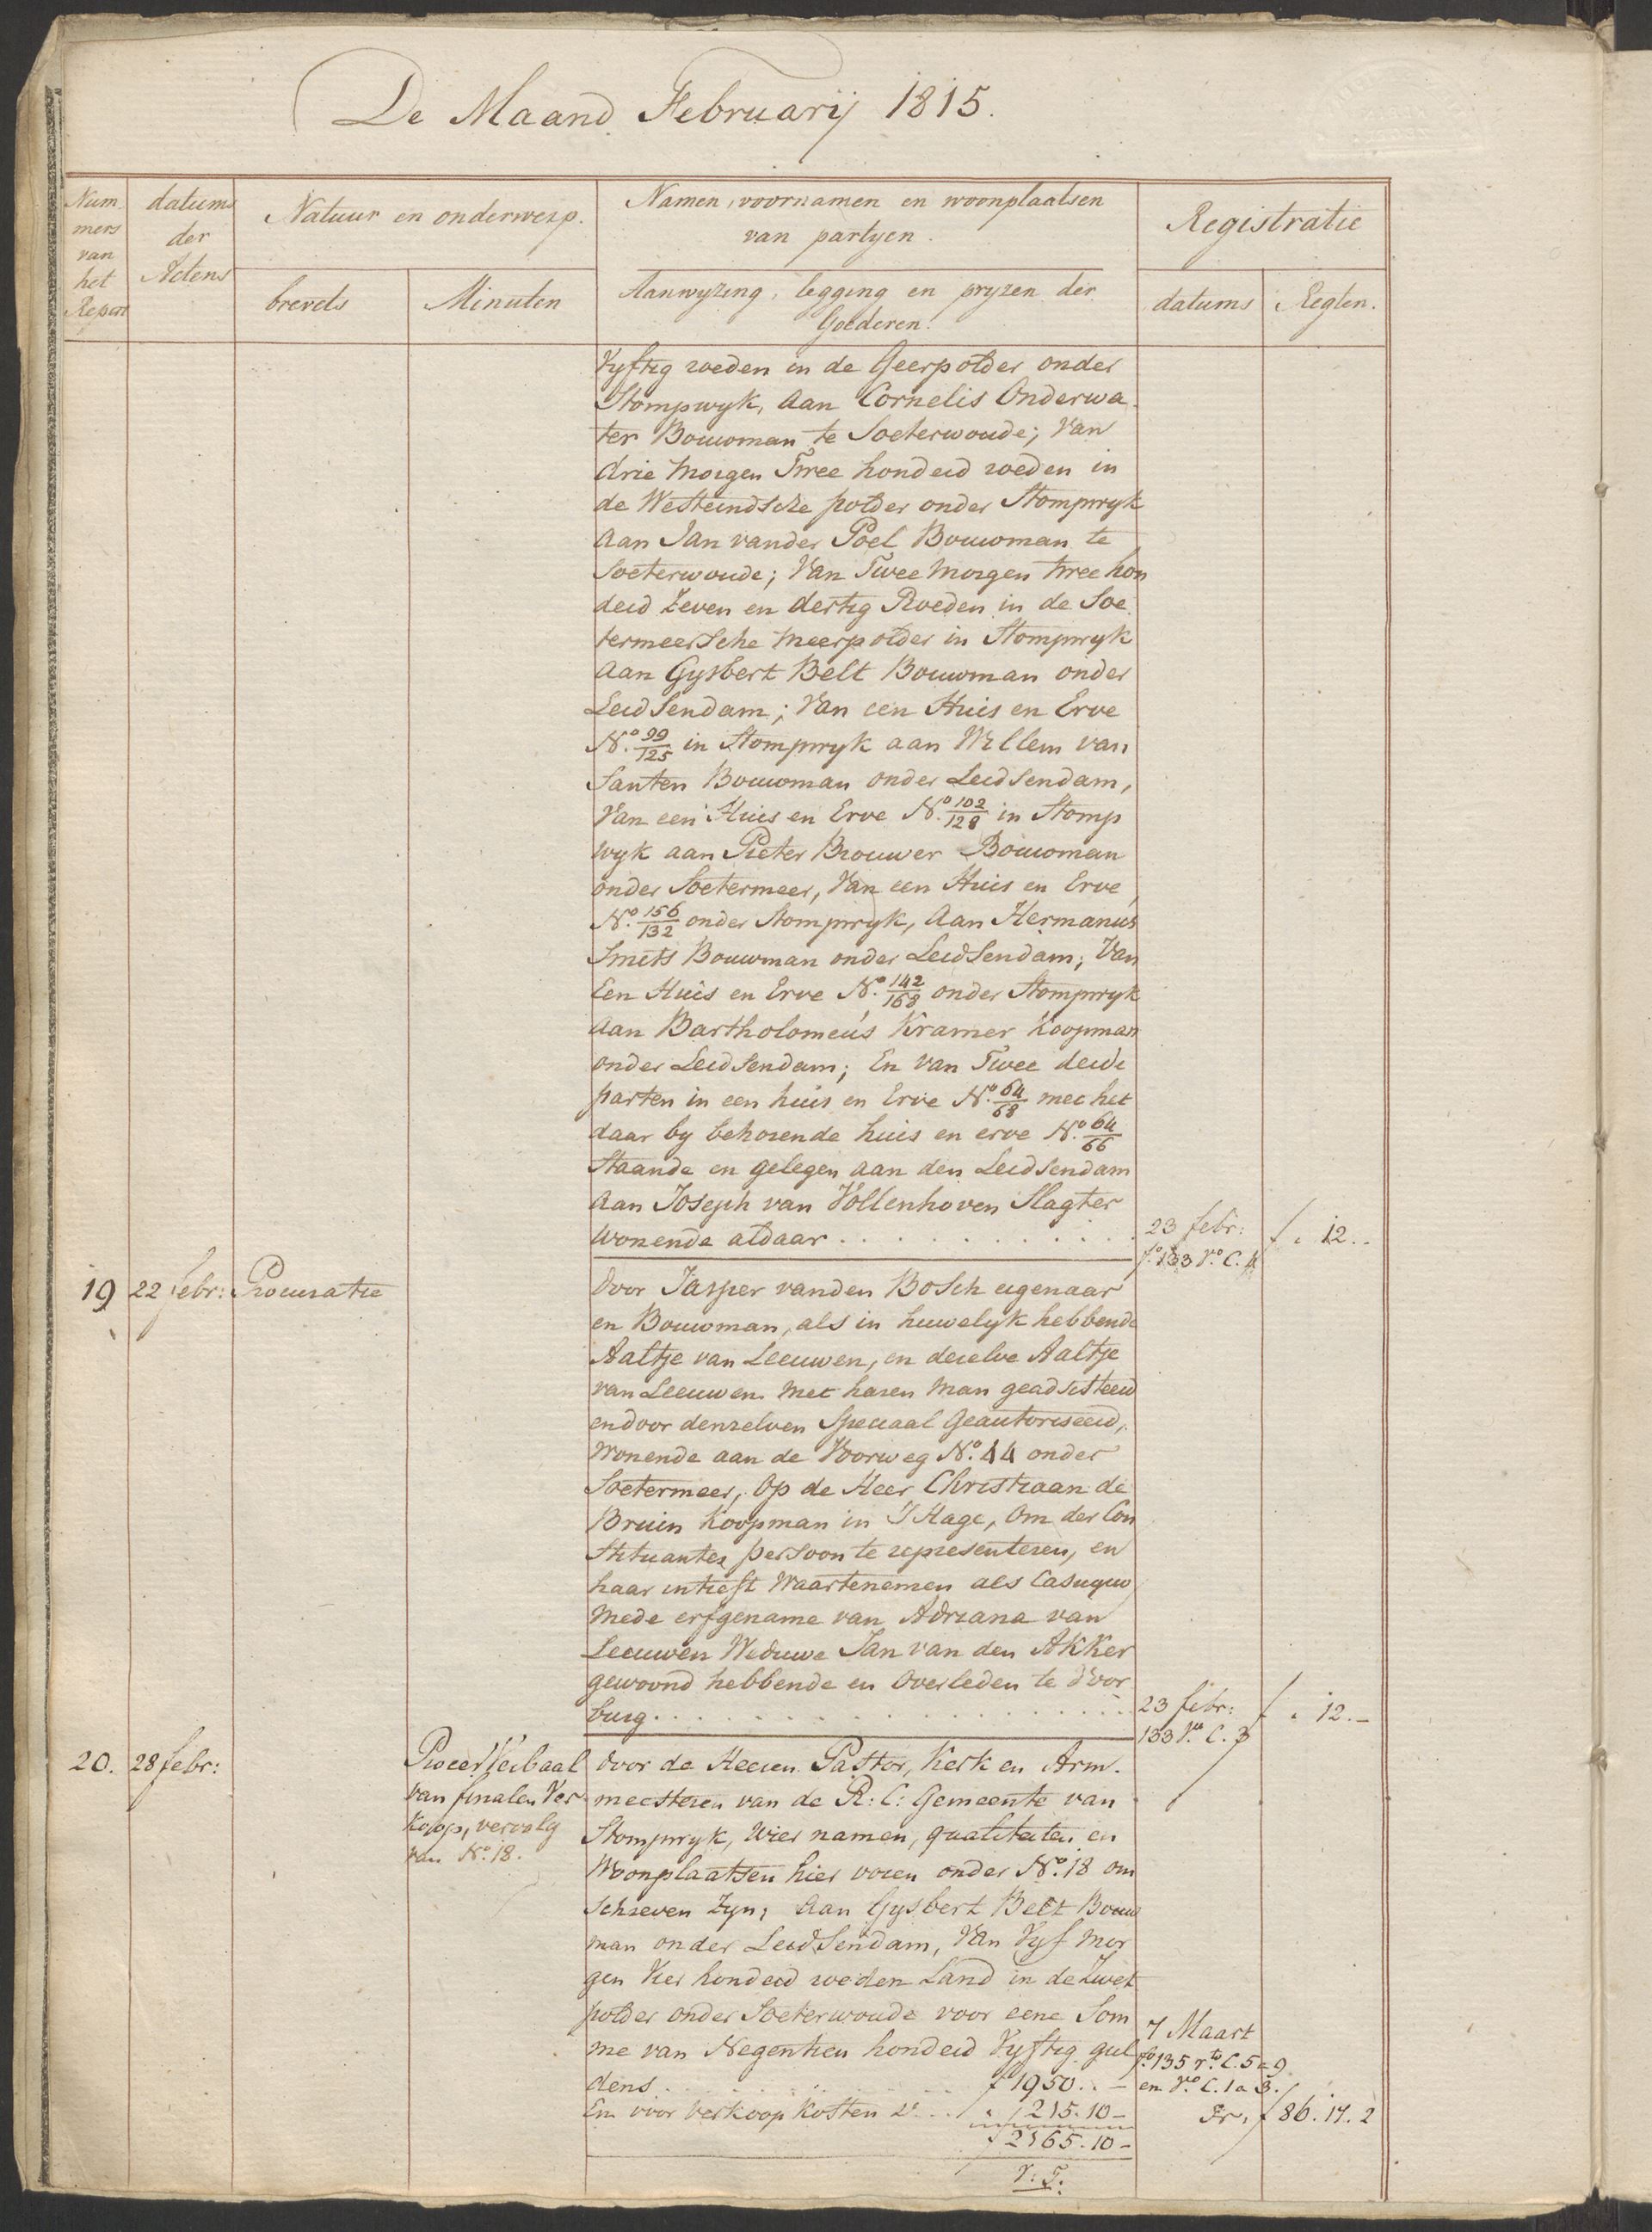 De Maand Februarij 1815.
Num
mers
van
het
Repert
datums
der
Actens
Natuur en onderwerp.
brevets
Minuten
Namen, voornamen en woonplaatsen
van partyen.
Aanwyzing, legging en pryzen der
Goederen.
Registratie
datums
Regten.
Vyftig roeden in de Geerpolder onder
Stompwyk, aan Cornelis Onderwa
ter Bouwman te Soeterwoude; Van
drie morgen Twee honderd roeden in
de Westeindsche polder onder Stompwyk
aan Jan vander Poel Bouwman te
Soeterwoude; Van Twee morgen twee hon
derd Zeven en dertig Roeden in de Soe
termeersche meerpolder in Stompwyk
aan Gysbert Belt Bouwman onder
Leidsendam; Van een Huis en Erve
No. 99/125 in Stompwyk aan Willem van
Santen Bouwman onder Leidsendam,
Van een Huis en Erve No. 102/128 in Stomp
wyk aan Pieter Brouwer Bouwman
onder Soetermeer, Van een Huis en Erve
No. 156/132 onder Stompwyk, aan Hermanus
Smets Bouwman onder Leidsendam; Van
Een Huis en Erve No. 142/168 onder Stompwyk
aan Bartholomeus Kramer Koopman
onder Leidsendam; En van Twee derde
parten in een huis en Erve No. 64/68 met het
daar by behorende huis en erve No. 64/66
Staande en gelegen aan den Leidsendam
aan Joseph van Vollenhoven Slagter
wonende aldaar . . . . . . . . . .
23 febr:
fo. 133 Vo. C. 4
f " 12..
19
22 febr:
Procuratie
door Jasper vanden Bosch eigenaar
en Bouwman, als in huwelyk hebbende
Aaltje van Leeuwen, en dezelve Aaltje
van Leeuwen met haren man geadsisteerd
en door denzelven speciaal Geautoriseerd,
Wonende aan de Voorweg No. 44 onder
Soetermeer, op de Heer Christiaan de
Bruin Koopman in 's Hage, om der Con
stituanten persoon te representeren, en
haar intrest Waartenemen als Casuquo
mede erfgename van Adriana van
Leeuwen Weduwe Jan van den Akker
gewoond hebbende en Overleden te Voor
burg . . . . . . . . . . . . . .
23 febr:
133 Vo. C. 3
f " 12.-
20.
28 febr:
Proces Verbaal
van finalen Ver
koop, vervolg
van No. 18.
door de Heeren Pastor, Kerk en Arm
meesteren van de R: C: Gemeente van
Stompwyk, Wier namen, qualiteiten en
Woonplaatsen hier voren onder No. 18 om
schreven zyn; aan Gysbert Belt Bouw
man onder Leidsendam, Van Vyf mor
gen Vier honderd roeden Land in de Zwet
polder onder Soeterwoude voor eene Som
me van Negentien honderd Vyftig gul
dens . . . . . . . . . f 1950..-
En voor verkoop Kosten . . . " 215.10-
f 2165.10-
V. T.
7 Maart
fo. 135 rto. C. 5 a 9
en Vo. C. 1 a 3.
Fr. f 86.17.2